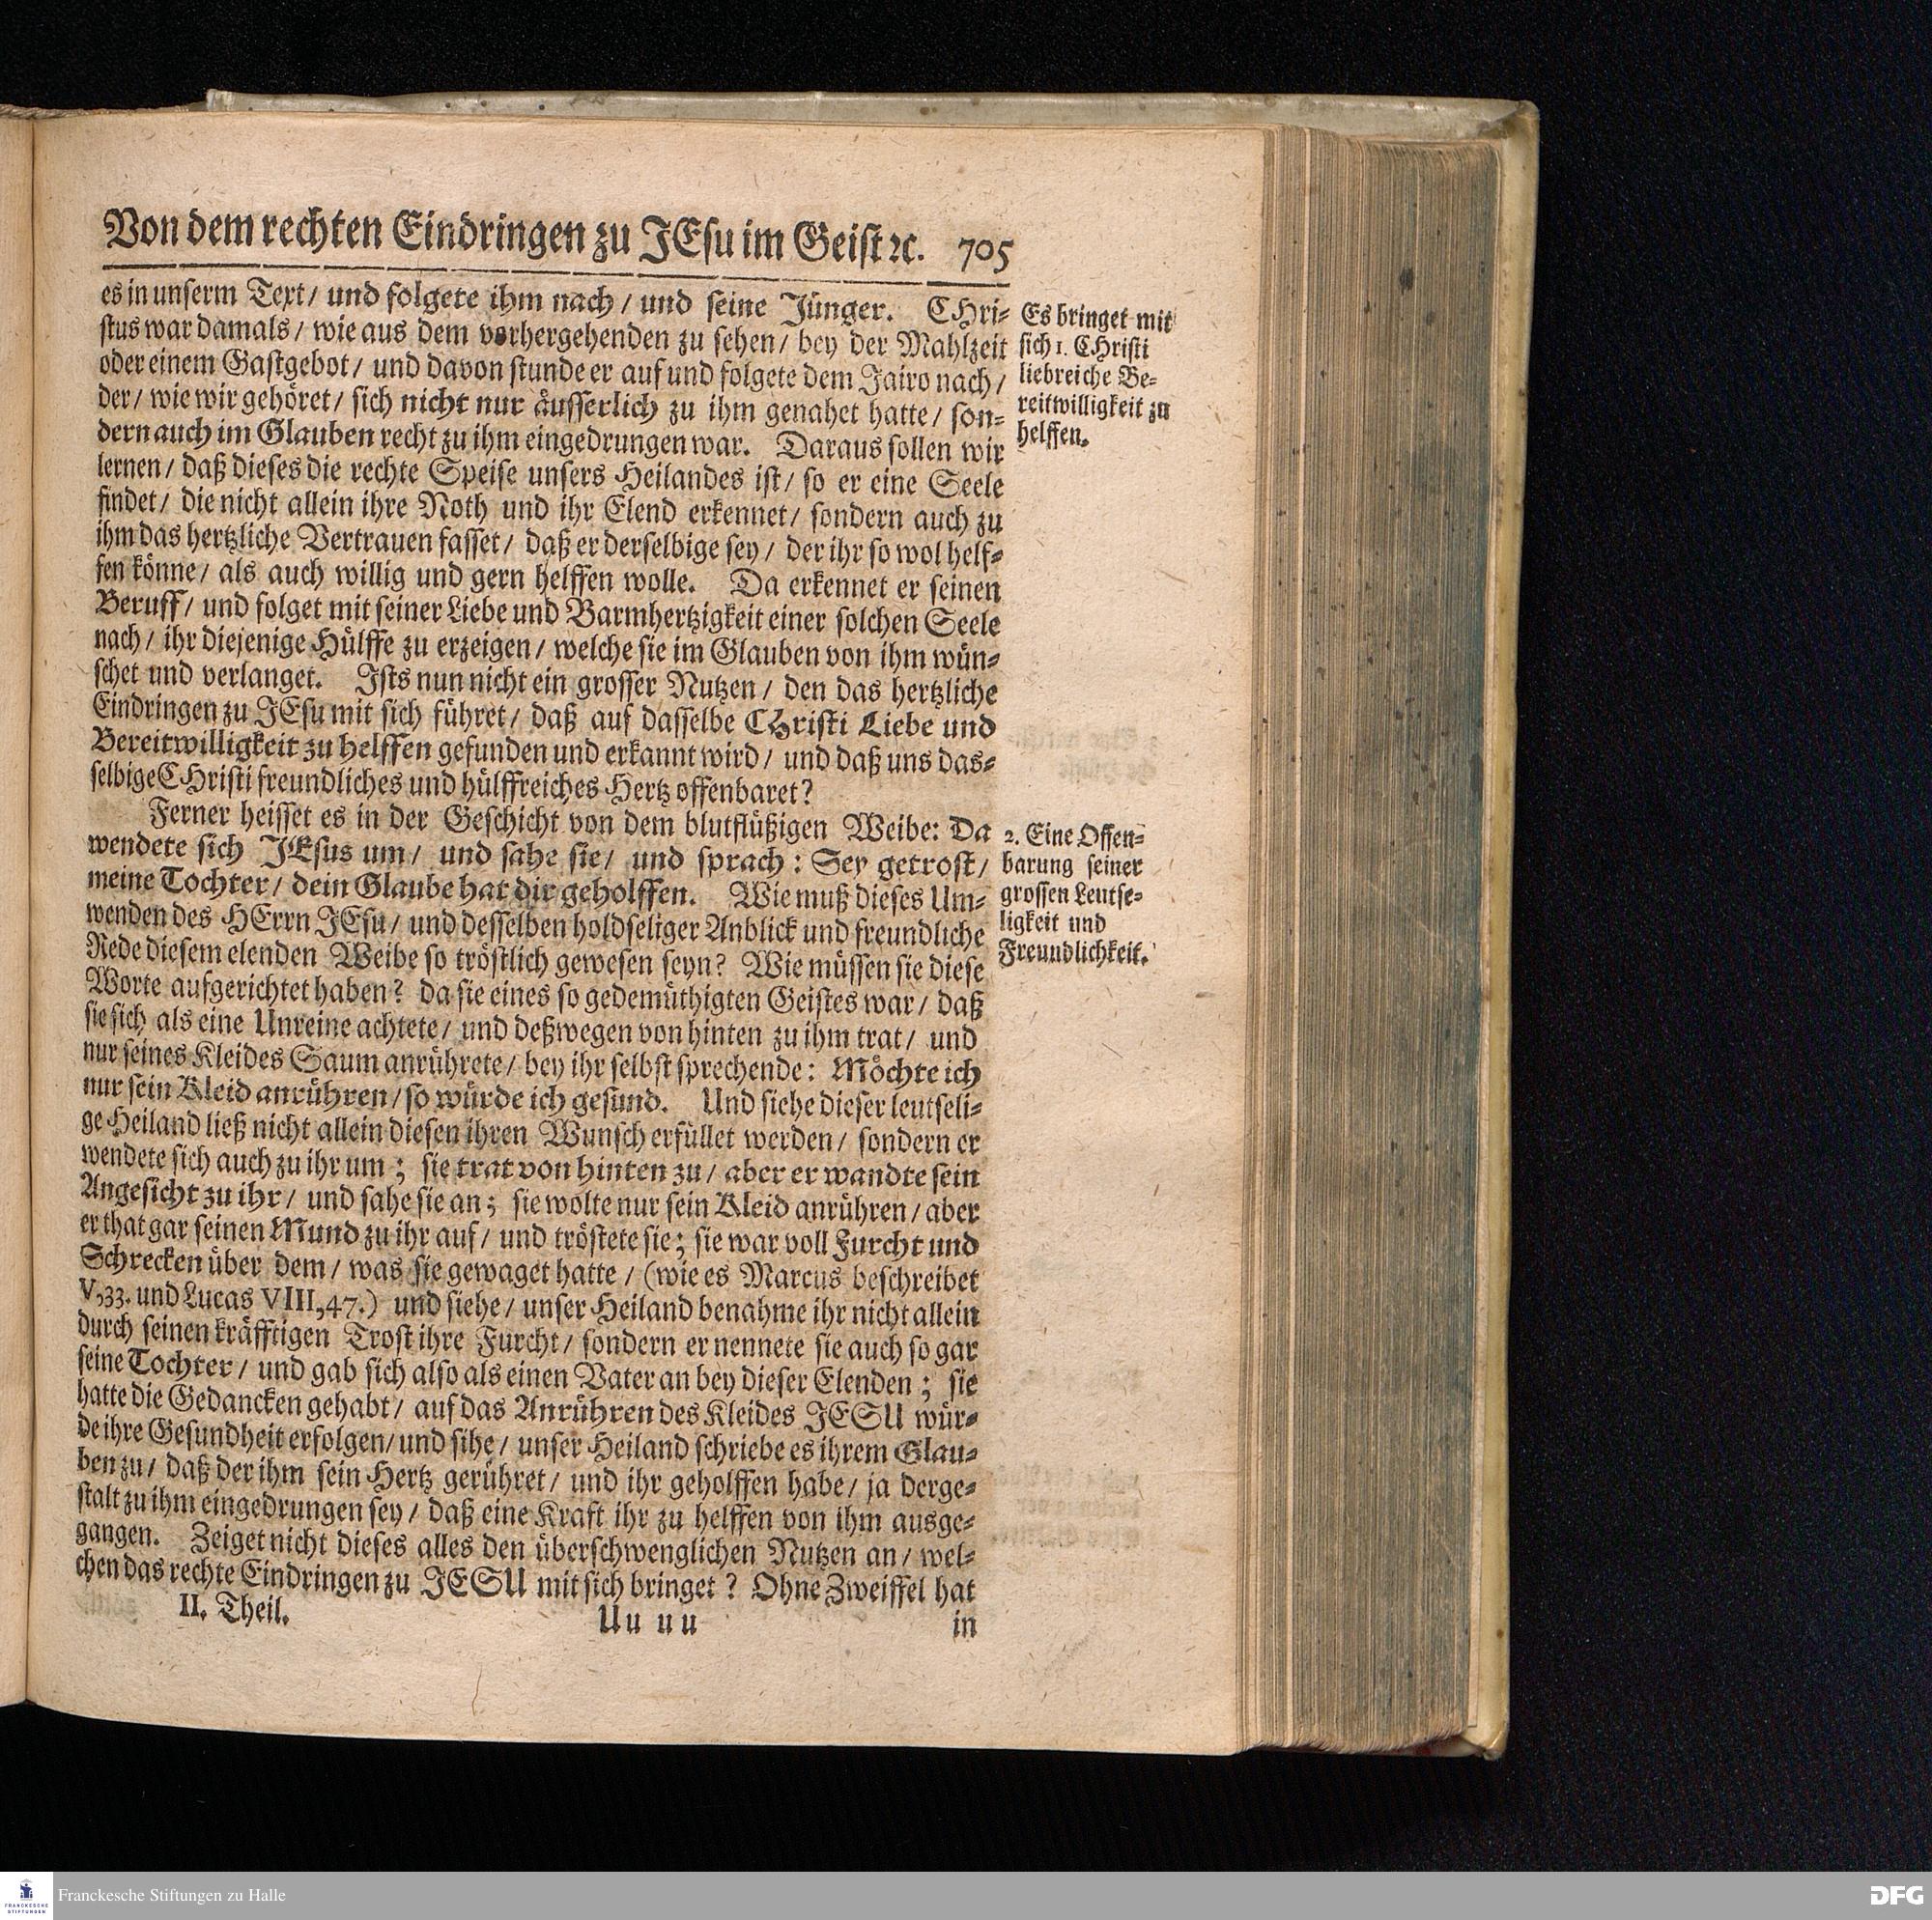 Von dem rechten Eindringen zu JEsu im Geist ꝛc. 705
es in unserm Text/ und folgete ihm nach/ und seine Jünger. CHri-
stus war damals/ wie aus dem vorhergehenden zu sehen/ bey der Mahlzeit
oder einem Gastgebot/ und davon stunde er auf und folgete dem Jairo nach/
der/ wie wir gehöret/ sich nicht nur äusserlich zu ihm genahet hatte/ son-
dern auch im Glauben recht zu ihm eingedrungen war. Daraus sollen wir
lernen/ daß dieses die rechte Speise unsers Heilandes ist/ so er eine Seele
findet/ die nicht allein ihre Noth und ihr Elend erkennet/ sondern auch zu
ihm das hertzliche Vertrauen fasset/ daß er derselbige sey/ der ihr so wol helf-
fen könne/ als auch willig und gern helffen wolle. Da erkennet er seinen
Beruff/ und folget mit seiner Liebe und Barmhertzigkeit einer solchen Seele
nach/ ihr diejenige Hülffe zu erzeigen/ welche sie im Glauben von ihm wün-
schet und verlanget. Ists nun nicht ein grosser Nutzen/ den das hertzliche
Eindringen zu JEsu mit sich führet/ daß auf dasselbe CHristi Liebe und
Bereitwilligkeit zu helffen gefunden und erkannt wird/ und daß uns das-
selbige CHristi freundliches und hülffreiches Hertz offenbaret?
Es bringet mit
sich 1. CHristi
liebreiche Be-
reitwilligkeit zu
helffen.
Ferner heisset es in der Geschicht von dem blutflüßigen Weibe: Da
wendete sich JEsus um/ und sahe sie/ und sprach: Sey getrost/
meine Tochter/ dein Glaube hat dir geholffen. Wie muß dieses Um-
wenden des HErrn JEsu/ und desselben holdseliger Anblick und freundliche
Rede diesem elenden Weibe so tröstlich gewesen seyn? Wie müssen sie diese
Worte aufgerichtet haben? da sie eines so gedemüthigten Geistes war/ daß
sie sich als eine Unreine achtete/ und deßwegen von hinten zu ihm trat/ und
nur seines Kleides Saum anrührete/ bey ihr selbst sprechende: Möchte ich
nur sein Kleid anrühren/ so würde ich gesund. Und siehe dieser leutseli-
ge Heiland ließ nicht allein diesen ihren Wunsch erfüllet werden/ sondern er
wendete sich auch zu ihr um; sie trat von hinten zu/ aber er wandte sein
Angesicht zu ihr/ und sahe sie an; sie wolte nur sein Kleid anrühren/ aber
er that gar seinen Mund zu ihr auf/ und tröstete sie; sie war voll Furcht und
Schrecken über dem/ was sie gewaget hatte/ (wie es Marcus beschreibet
V, 33. und Lucas VIII, 47.) und siehe/ unser Heiland benahme ihr nicht allein
durch seinen kräfftigen Trost ihre Furcht/ sondern er nennete sie auch so gar
seine Tochter/ und gab sich also als einen Vater an bey dieser Elenden; sie
hatte die Gedancken gehabt/ auf das Anrühren des Kleides JESU wür-
de ihre Gesundheit erfolgen/ und sihe/ unser Heiland schriebe es ihrem Glau-
ben zu/ daß der ihm sein Hertz gerühret/ und ihr geholffen habe/ ja derge-
stalt zu ihm eingedrungen sey/ daß eine Kraft ihr zu helffen von ihm ausge-
gangen. Zeiget nicht dieses alles den überschwenglichen Nutzen an/ wel-
chen das rechte Eindringen zu JESU mit sich bringet? Ohne Zweiffel hat
2. Eine Offen-
barung seiner
grossen Leutse-
ligkeit und
Freundlichkeit.
II. Theil. Uu uu in
FRANCKESCHE STIFTUNGEN
Franckesche Stiftungen zu Halle
DFG